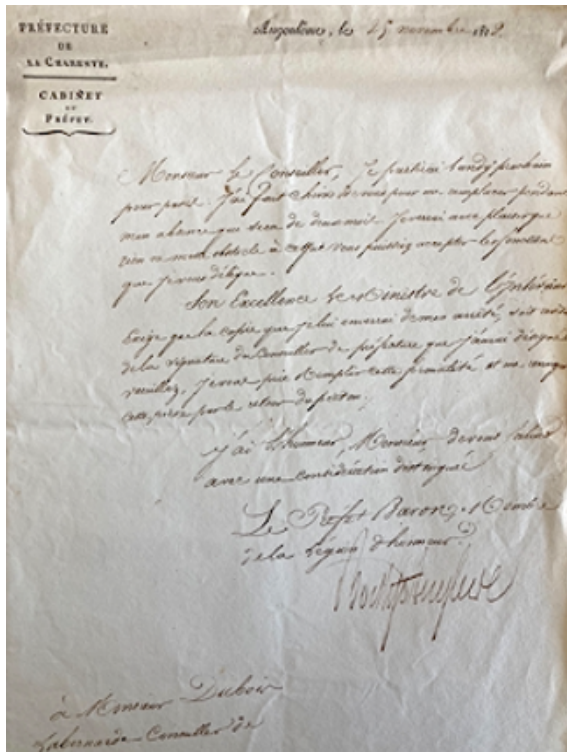 PRÉFECTURE
DE
LA CHARENTE.
CABINET
DU
PRÉFET.
Angoulême, le 25 novembre 1812.
Monsieur le Conseiller, Je partirai lundy prochain
pour paris. J'ai fait choix de vous pour me remplacer pendant
mon absence que sera de deux mois. Je verrai avec plaisir que
rien ne mette obstacle à ce que vous puissiez accepter les fonctions
que je vous délègue.
Son Excellence le Ministre de l'Intérieur
Exige que la copie que je lui enverrai de mon arrêté, soit
de la signature du Conseiller de préfecture que j'aurai désigné
veuillez, je vous prie remplir cette formalité et me renvoyer
cette pièce par le retour du
J'ai l'honneur, Monsieur, de vous saluer
avec une considération distinguée
Le Préfet Baron, Membre
de la Légion d'honneur.
à Monsieur Dubois
Labernarde Conseiller de